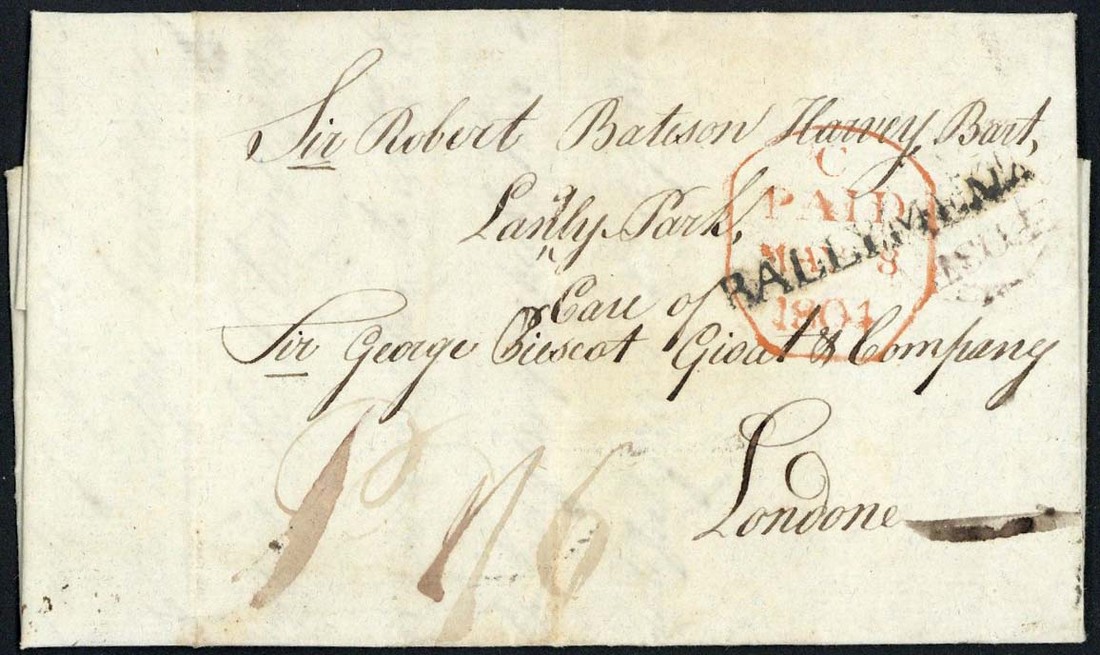 Sir Robert Bateson Harvey Bart,
Lanly Park,
Care of
Sir George Prescot Groat & Company
Londone
C
PAID
8
1804
BALLIMENA